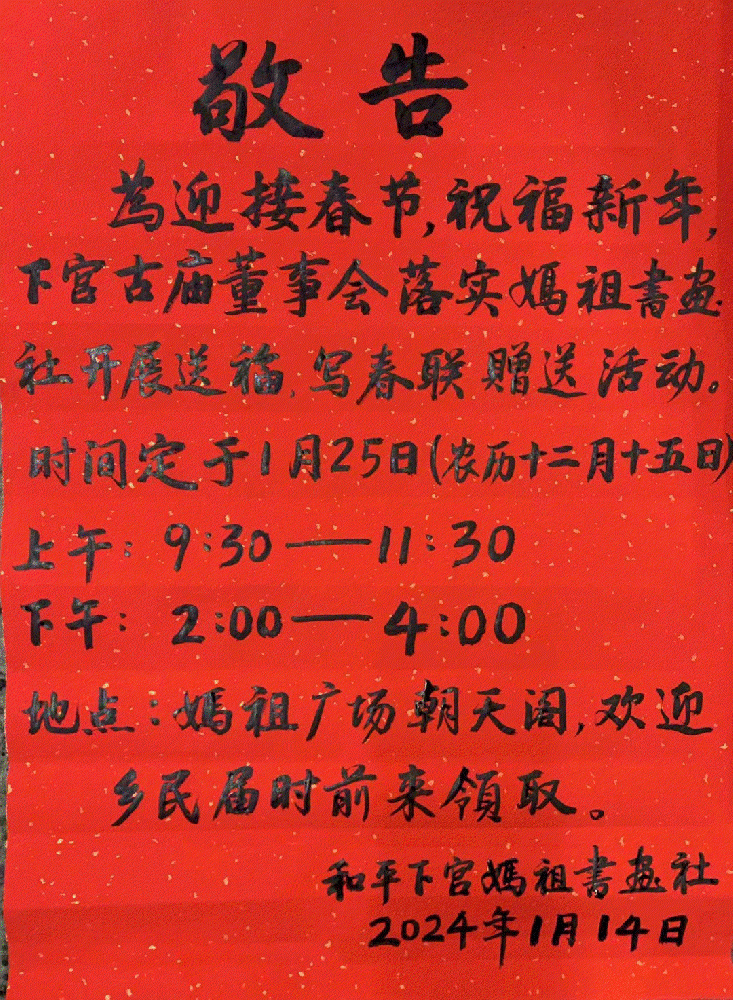 敬告
為迎接春节,祝福新年,
下宫古庙董事会落实媽祖書画
社开展送福、写春联赠送活动。
时间定于1月25日(农历十二月十五日)
上午:9:30——11:30
下午:2:00——4:00
地点:媽祖广场朝天阁,欢迎
乡民届时前来領取。
和平下宫媽祖書画社
2024年1月14日